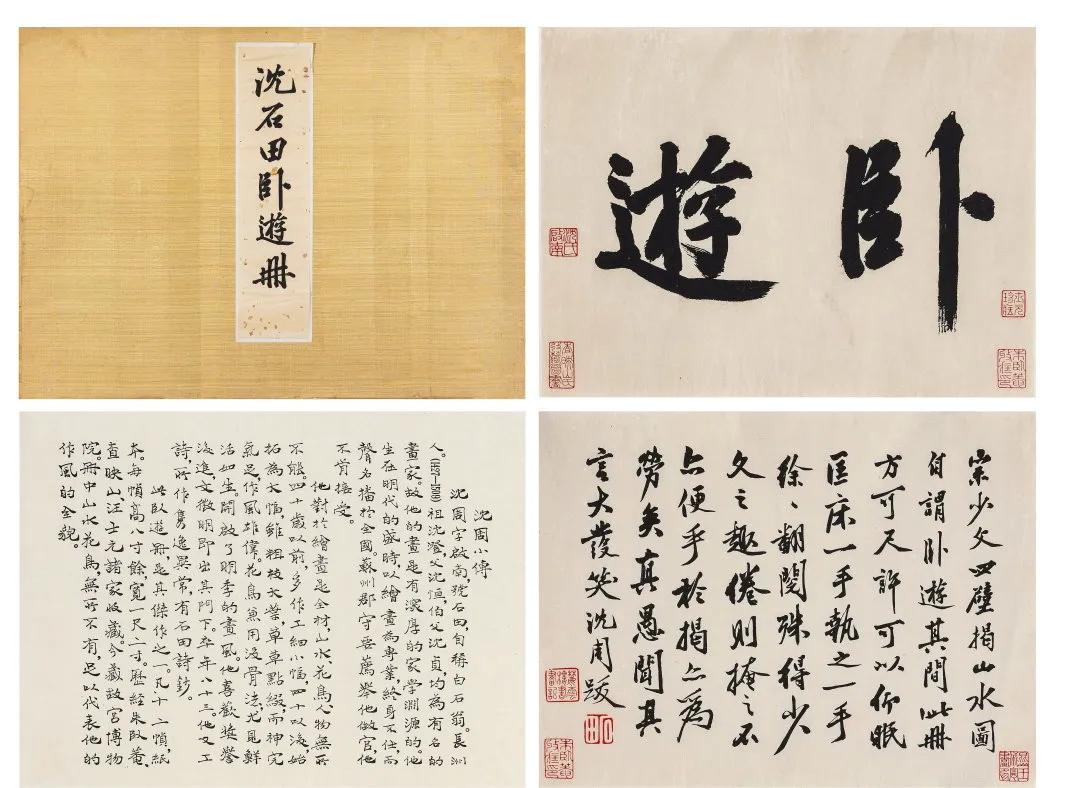 沈石田卧遊冊
卧遊
沈氏啟南
朱卧菴收藏印
沈周小傳
沈周字啟南,號石田,自稱白石翁。長洲
人。(1427—1509)祖沈澄父沈恒伯父沈貞,均為有名的
畫家。故他的畫是有濃厚的家學淵源的他
生在明代的盛時,以繪畫為專業,終身不仕,而
聲名播於全國。蘇州郡守要薦舉他做官,他
不肯接受。
他對於繪畫是全材山水、花鳥、人物、無所
不能。四十歲以前,多作工細小幅,四十以後,始
拓為大幅,雖粗枝大葉,草草點綴,而神完
氣足,作風雄偉。花鳥魚用沒骨法,尤見鮮
活如生。開啟了明季的畫風他喜歡獎譽
後進,文徵明即出其門下。卒年八十三。他又工
詩,所作雋逸異常,有石田詩鈔。
此卧遊冊是其傑作之一。凡十二幀,紙
本。每幀高八寸餘,寬一尺二寸。歷經朱卧菴,
查映山、汪士元諸家收藏。今藏故宮博物
院。冊中山水花鳥,無所不有,足以代表他的
作風的全貌。
宗少文四壁揭山水圖
自謂卧遊其間此冊
方可尺許可以仰眠
匡床一手執之一手
徐〻翻閱殊得少
文之趣倦則掩之不
亦便乎於揭亦為
勞矣真愚聞其
言大發笑沈周跋
石田